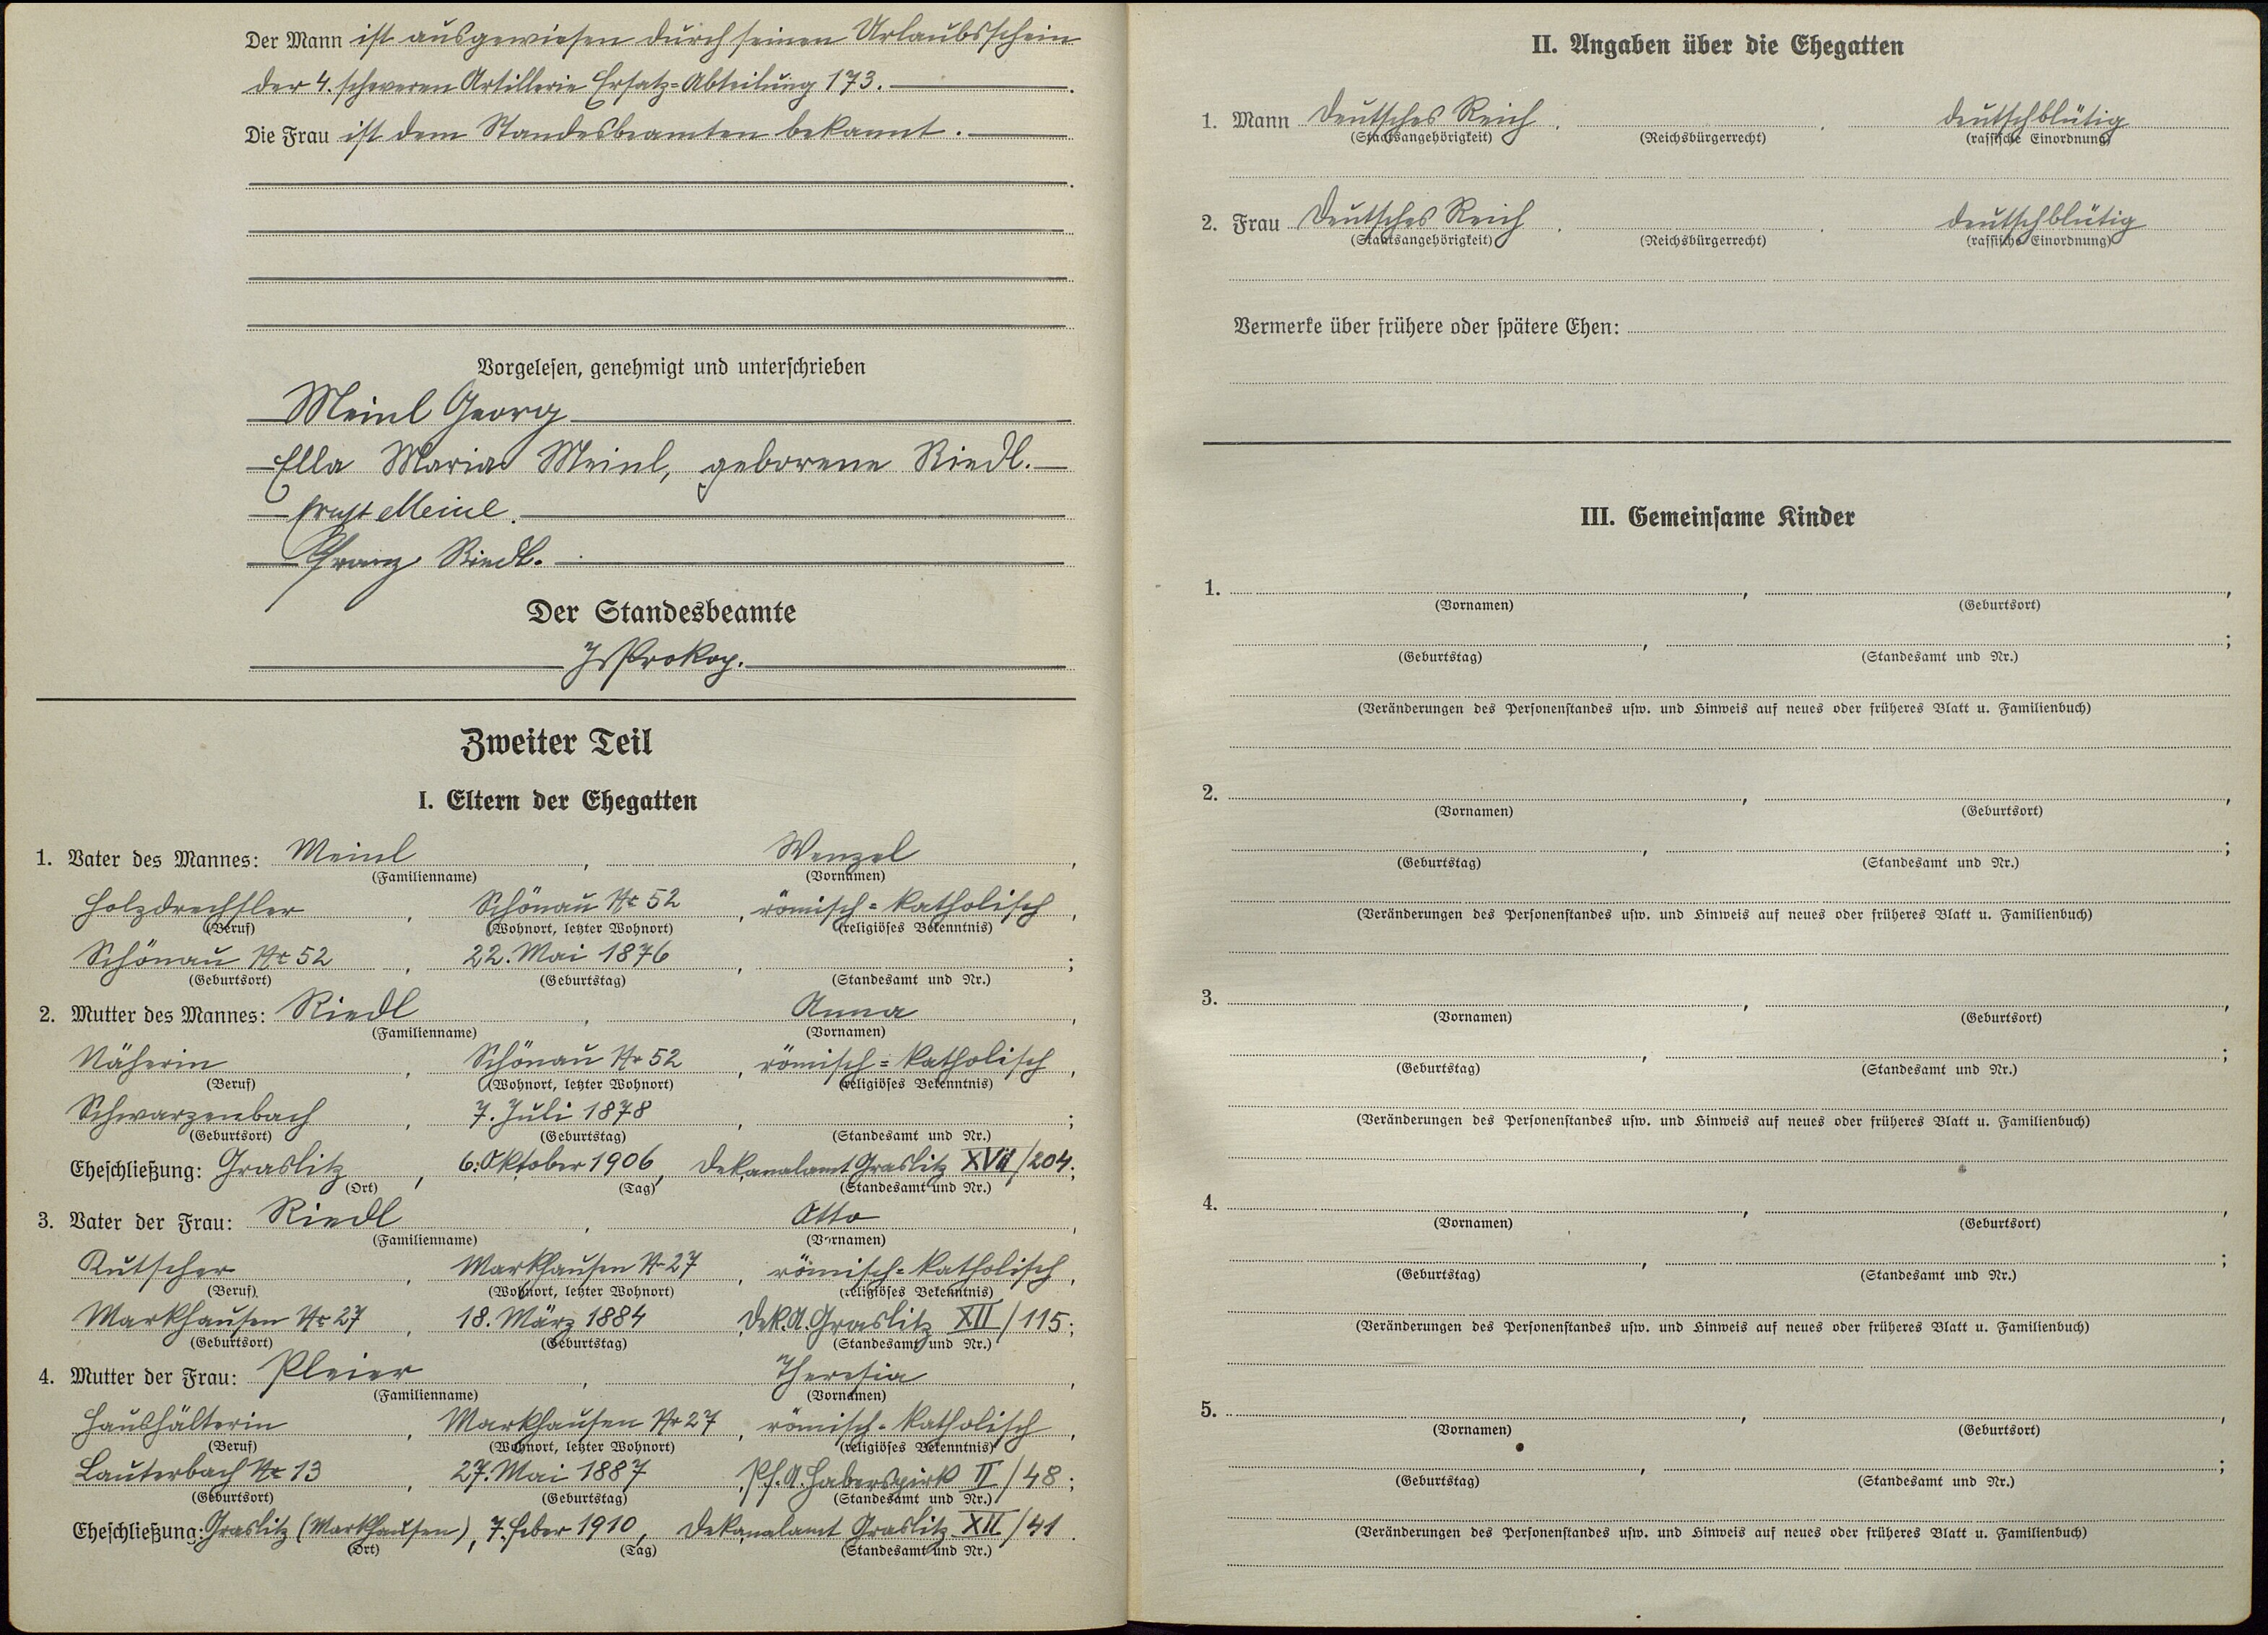 Der Mann ist ausgewiesen durch seinen Urlaubsschein
der 4. schweren Artillerie Ersatz=Abteilung 173.
Die Frau ist dem Standesbeamten bekannt.
Vorgelesen, genehmigt und unterschrieben
Meinl Georg
Ella Maria Meinl, geborene Riedl.
Ernst Meinl.
Franz Riedl.
Der Standesbeamte
Prokop.
Zweiter Teil
I. Eltern der Ehegatten
1. Vater des Mannes: Meinl, Wenzel,
(Familienname) (Vornamen)
Holzdrechsler, Schönau Nr 52, römisch=katholisch,
(Beruf) (Wohnort, letzter Wohnort) (religiöses Bekenntnis)
Schönau Nr 52, 22. Mai 1876, ;
(Geburtsort) (Geburtstag) (Standesamt und Nr.)
2. Mutter des Mannes: Riedl, Anna,
(Familienname) (Vornamen)
Näherin, Schönau Nr 52, römisch=katholisch,
(Beruf) (Wohnort, letzter Wohnort) (religiöses Bekenntnis)
Schwarzenbach, 7. Juli 1878, ;
(Geburtsort) (Geburtstag) (Standesamt und Nr.)
Eheschließung: Graslitz, 6. Oktober 1906, Dekanalamt Graslitz XVII/204;
(Ort) (Tag) (Standesamt und Nr.)
3. Vater der Frau: Riedl, Otto,
(Familienname) (Vornamen)
Kutscher, Markhausen Nr 27, römisch=katholisch,
(Beruf) (Wohnort, letzter Wohnort) (religiöses Bekenntnis)
Markhausen Nr 27, 18. März 1884, Dek.A. Graslitz XII/115;
(Geburtsort) (Geburtstag) (Standesamt und Nr.)
4. Mutter der Frau: Pleier, Theresia,
(Familienname) (Vornamen)
Haushälterin, Markhausen Nr 27, römisch=katholisch,
(Beruf) (Wohnort, letzter Wohnort) (religiöses Bekenntnis)
Lauterbach Nr 13, 27. Mai 1887, Pf.A. Haberspirk II/48;
(Geburtsort) (Geburtstag) (Standesamt und Nr.)
Eheschließung: Graslitz (Markhausen), 7. Feber 1910, Dekanalamt Graslitz XII/41
(Ort) (Tag) (Standesamt und Nr.)
II. Angaben über die Ehegatten
1. Mann Deutsches Reich, , deutschblütig
(Staatsangehörigkeit) (Reichsbürgerrecht) (rassische Einordnung)
2. Frau Deutsches Reich, , deutschblütig
(Staatsangehörigkeit) (Reichsbürgerrecht) (rassische Einordnung)
Vermerke über frühere oder spätere Ehen:
III. Gemeinsame Kinder
1. , ,
(Vornamen) (Geburtsort)
, ;
(Geburtstag) (Standesamt und Nr.)
(Veränderungen des Personenstandes usw. und Hinweis auf neues oder früheres Blatt u. Familienbuch)
2. , ,
(Vornamen) (Geburtsort)
, ;
(Geburtstag) (Standesamt und Nr.)
(Veränderungen des Personenstandes usw. und Hinweis auf neues oder früheres Blatt u. Familienbuch)
3. , ,
(Vornamen) (Geburtsort)
, ;
(Geburtstag) (Standesamt und Nr.)
(Veränderungen des Personenstandes usw. und Hinweis auf neues oder früheres Blatt u. Familienbuch)
4. , ,
(Vornamen) (Geburtsort)
, ;
(Geburtstag) (Standesamt und Nr.)
(Veränderungen des Personenstandes usw. und Hinweis auf neues oder früheres Blatt u. Familienbuch)
5. , ,
(Vornamen) (Geburtsort)
, ;
(Geburtstag) (Standesamt und Nr.)
(Veränderungen des Personenstandes usw. und Hinweis auf neues oder früheres Blatt u. Familienbuch)